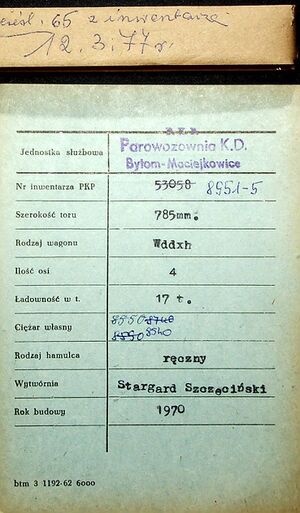 65 z inwentarza
12.3.77 r.
P.K.P.
Jednostka służbowa Parowozownia K.D.
Bytom-Maciejkowice
Nr inwentarza PKP 53058 8951-5
Szerokość toru 785mm.
Rodzaj wagonu Wddxh
Ilość osi 4
Ładowność w t. 17 t.
Ciężar własny 8550 8740
8550 8540
Rodzaj hamulca ręczny
Wytwórnia Stargard Szczęciński
Rok budowy 1970
btm 3 1192-62 6000